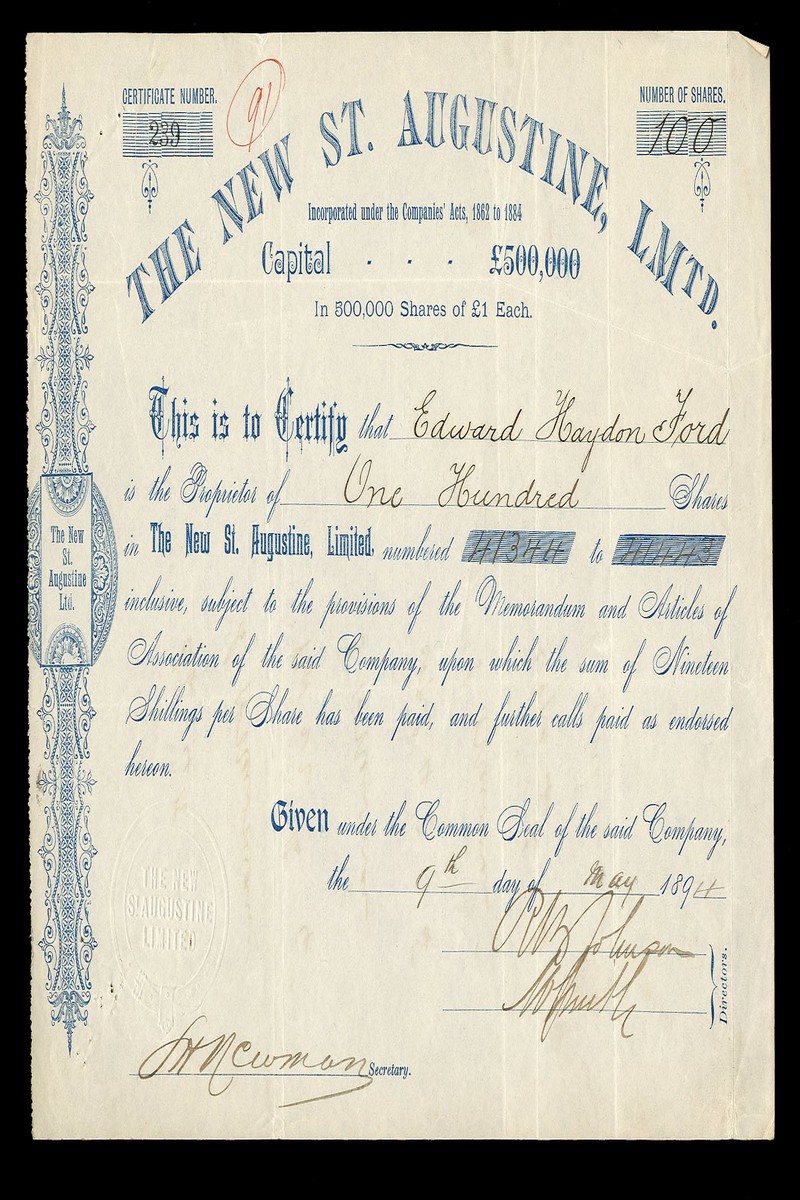 CERTIFICATE NUMBER.
239
91
NUMBER OF SHARES.
100
THE NEW ST. AUGUSTINE, LMTD.
Incorporated under the Companies' Acts, 1862 to 1884
Capital - - - £500,000
In 500,000 Shares of £1 Each.
This is to Certify that Edward Haydon Ford
is the Proprietor of One Hundred Shares
in The New St. Augustine, Limited, numbered 41344 to 41443
inclusive, subject to the provisions of the Memorandum and Articles of
Association of the said Company, upon which the sum of Nineteen
Shillings per Share has been paid, and further calls paid as endorsed
hereon.
The New
St.
Augustine
Ltd.
Given under the Common Seal of the said Company,
the 9th day of May 1894
THE NEW
ST. AUGUSTINE
LIMITED
Johnson
Directors.
Newman Secretary.